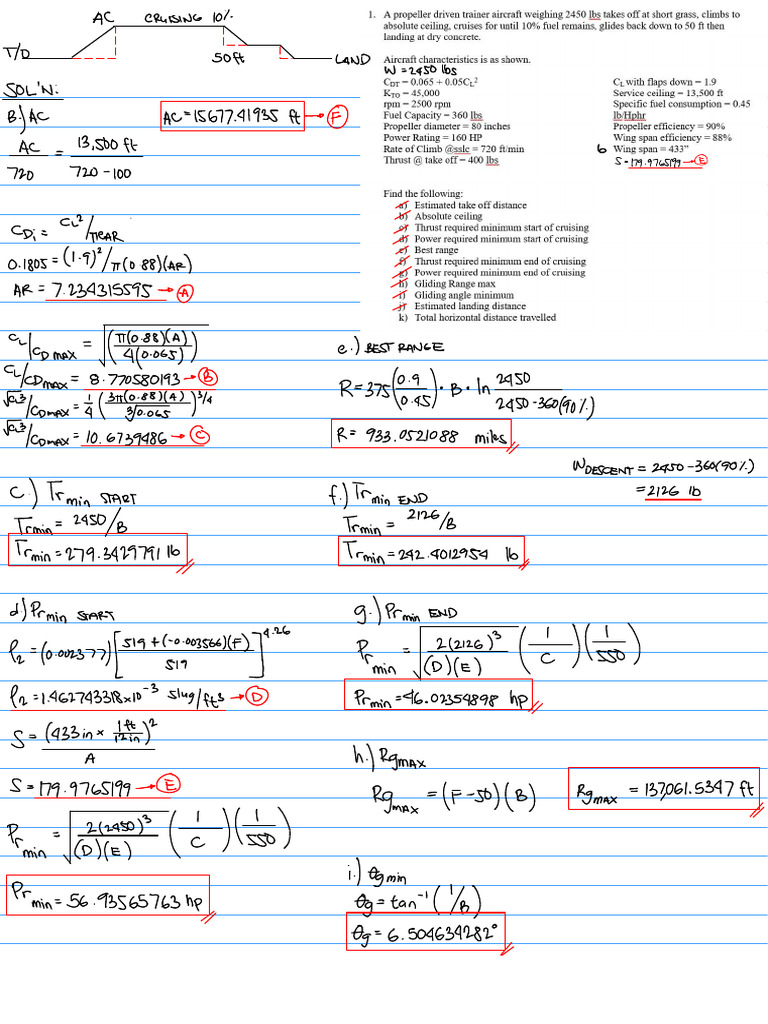 AC CRUISING 10%
T/D 50ft LAND
SOL'N:
B) AC
AC=15677.41935 ft → F
AC/720 = 13,500 ft/720-100
1. A propeller driven trainer aircraft weighing 2450 lbs takes off at short grass, climbs to
absolute ceiling, cruises for until 10% fuel remains, glides back down to 50 ft then
landing at dry concrete.
Aircraft characteristics is as shown.
W = 2450 lbs
C_DT = 0.065 + 0.05C_L²
K_TO = 45,000
rpm = 2500 rpm
Fuel Capacity = 360 lbs
Propeller diameter = 80 inches
Power Rating = 160 HP
Rate of Climb @sslc = 720 ft/min
Thrust @ take off = 400 lbs
C_L with flaps down = 1.9
Service ceiling = 13,500 ft
Specific fuel consumption = 0.45
lb/Hphr
Propeller efficiency = 90%
Wing span efficiency = 88%
b Wing span = 433"
S=179.9765199 → E
Find the following:
a) Estimated take off distance
b) Absolute ceiling
c) Thrust required minimum start of cruising
d) Power required minimum start of cruising
e) Best range
f) Thrust required minimum end of cruising
g) Power required minimum end of cruising
h) Gliding Range max
i) Gliding angle minimum
j) Estimated landing distance
k) Total horizontal distance travelled
C_Di = C_L²/πeAR
0.1805 = (1.9)²/π(0.88)(AR)
AR = 7.234315595 → A
C_L/C_D MAX = √((π(0.88)(A))/4(0.065))
C_L/C_D MAX = 8.770580193 → B
√C_L³/C_D MAX = 1/4 (3π(0.88)(A)/∛0.065)^3/4
√C_L³/C_D MAX = 10.6739486 → C
e.) BEST RANGE
R = 375(0.9/0.45) · B · ln 2450/2450-360(90%)
R = 933.0521088 miles
W DESCENT = 2450-360(90%)
= 2126 lb
c.) Tr min START
Tr min = 2450/B
Tr min = 279.3429791 lb
f.) Tr min END
Tr min = 2126/B
Tr min = 242.4012954 lb
d.) Pr min START
ρ2 = (0.002377)[519+(-0.003566)(F)/519]^4.26
ρ2 = 1.462743318×10⁻³ slug/ft³ → D
S = (433in × 1ft/12in)²/A
S = 179.9765199 → E
Pr min = √(2(2450)³/(D)(E)) (1/C)(1/550)
Pr min = 56.93565763 hp
g.) Pr min END
Pr min = √(2(2126)³/(D)(E)) (1/C)(1/550)
Pr min = 46.02354898 hp
h.) Rg MAX
Rg MAX = (F-50)(B)
Rg MAX = 137,061.5347 ft
i.) θg min
θg = tan⁻¹(1/B)
θg = 6.504634282°